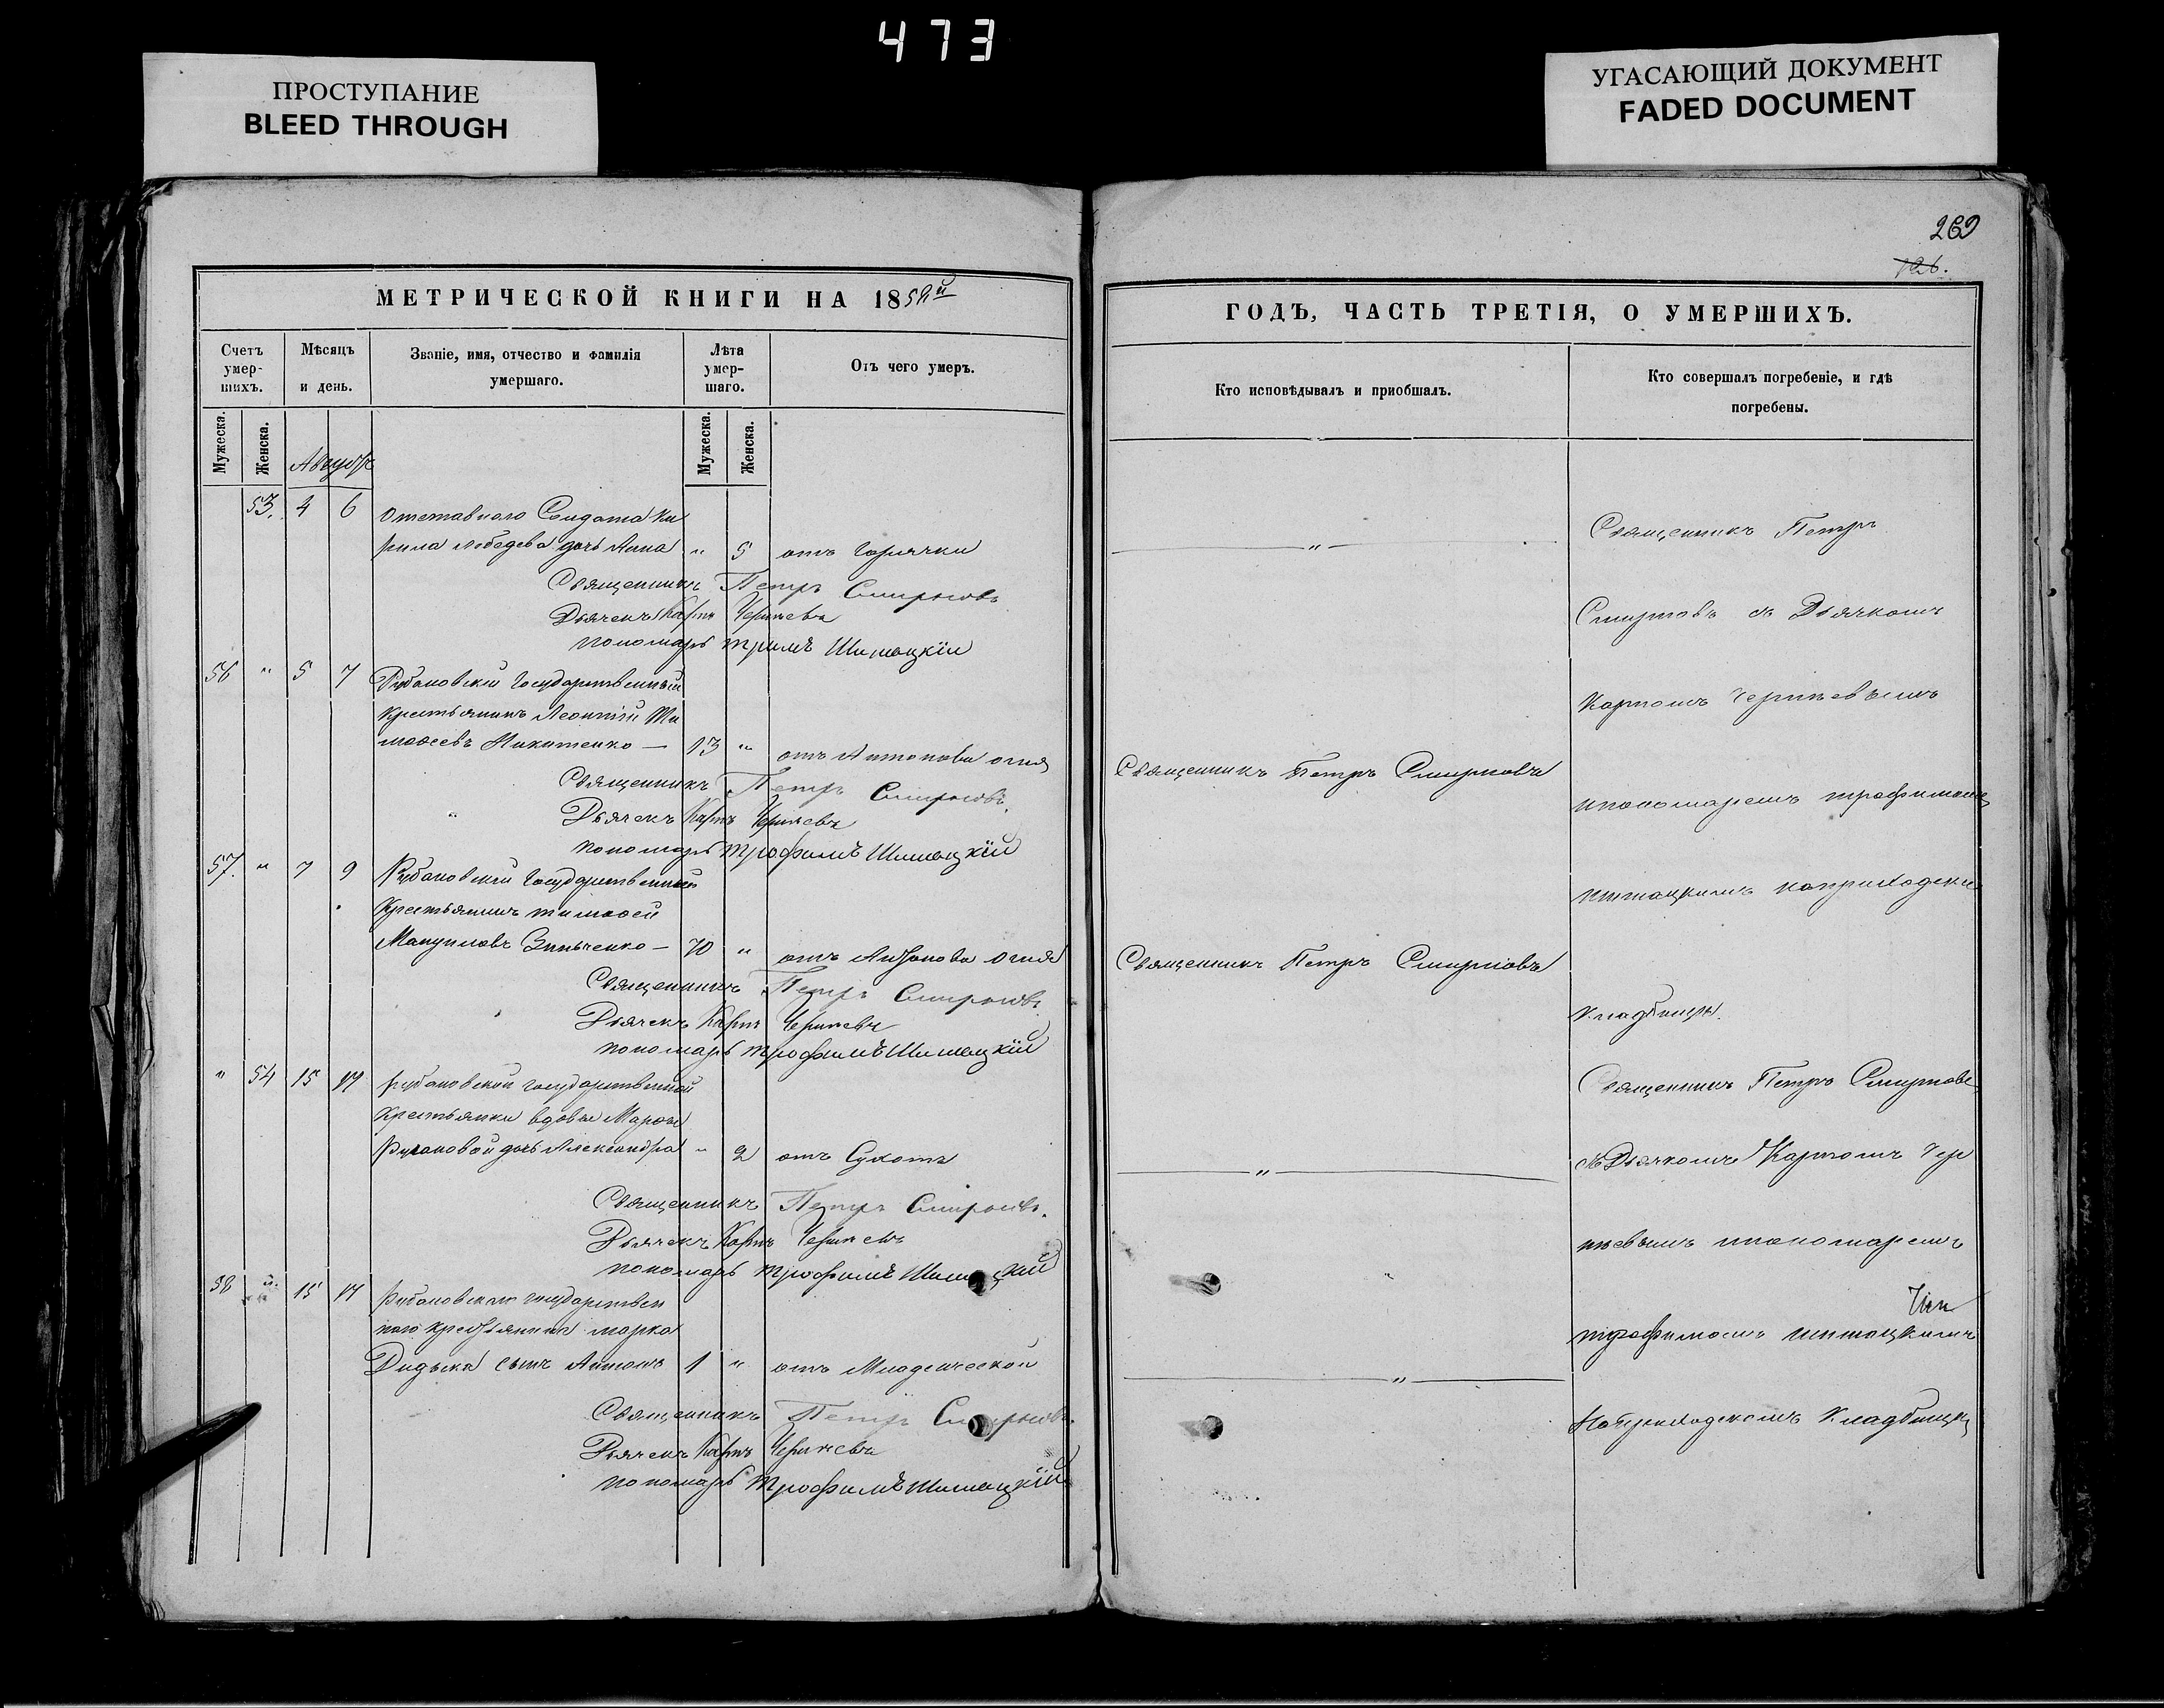 473
ПРОСТУПАНИЕ
BLEED THROUGH
УГАСАЮЩИЙ ДОКУМЕНТ
FADED DOCUMENT
МЕТРИЧЕСКОЙ КНИГИ НА 185
Счетъ умер-шихъ.
Мѣсяцъ и день.
Званіе, имя, отчество и фамилія умершаго.
Лѣта умер-шаго.
Отъ чего умеръ.
Мужеска.
Женска.
Мужеска.
Женска.
Августъ
53. 4 6 Отставнаго Солдата Ки
рила Лебедева дочь Анна " 5 отъ горячки
Священникъ Петръ Смирновъ
Дьячекъ Карпъ Черняевъ
пономарь
56 " 5 7 Рубановскій Государственный
Крестьянинъ Леонтій Ти
моѳеевъ Никитенко — 13 " отъ Антонова огня
Священникъ Петръ Смирновъ.
Дьячекъ Карпъ Черняевъ
пономарь Трофимъ Шимацкій
57. " 7 9 Рубановскій Государственный
Крестьянинъ тимоѳей
Мануиловъ Зинченко — 70 " отъ Антонова огня
Священникъ Петръ Смирновъ.
Дьячекъ Карпъ Черняевъ
пономарь Трофимъ Шимацкій
" 54 15 17 Рубановской государственной
Крестьянки вдовы Марѳы
дочь Александра " 2 отъ Сухотъ
Священникъ Петръ Смирновъ.
Дьячекъ Карпъ Черняевъ
пономарь Трофимъ Шимацкій
58 15 17 Рубановскаго государствен
наго крестьянина марка
Дидыка сынъ Антонъ 1 " отъ Младенческой
Священникъ Петръ Смирновъ.
Дьячекъ Карпъ Черняевъ
пономарь Трофимъ Шимацкій
269
126.
ГОДЪ, ЧАСТЬ ТРЕТІЯ, О УМЕРШИХЪ.
Кто исповѣдывалъ и приобщалъ.
Кто совершалъ погребеніе, и гдѣ погребены.
"
Священникъ Петръ
Смирновъ съ Дьячкомъ
Карпомъ Черняевымъ
Священникъ Петръ Смирновъ
ипономаремъ трофимомъ
Шимацкимъ
Священникъ Петръ Смирновъ
Кладбищѣ.
Священникъ Петръ Смирновъ
съ Дьячкомъ Карпомъ Чер
"
няевымъ ипономаремъ
трофимомъ Шимацкимъ
"
Наприходскомъ Кладбищѣ